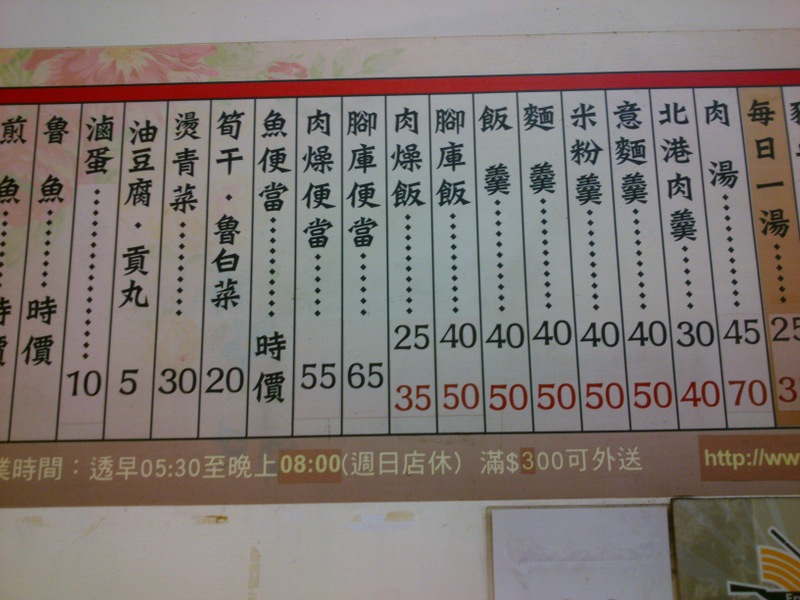 每日一湯 25 3
肉湯 45 70
北港肉羹 30 40
意麵羹 40 50
米粉羹 40 50
麵羹 40 50
飯羹 40 50
腳庫飯 40 50
肉燥飯 25 35
腳庫便當 65
肉燥便當 55
魚便當 時價
筍干.魯白菜 20
燙青菜 30
油豆腐.貢丸 5
滷蛋 10
魯魚 時價
煎魚 時價
業時間：透早05:30至晚上08:00(週日店休) 滿$300可外送
http://ww